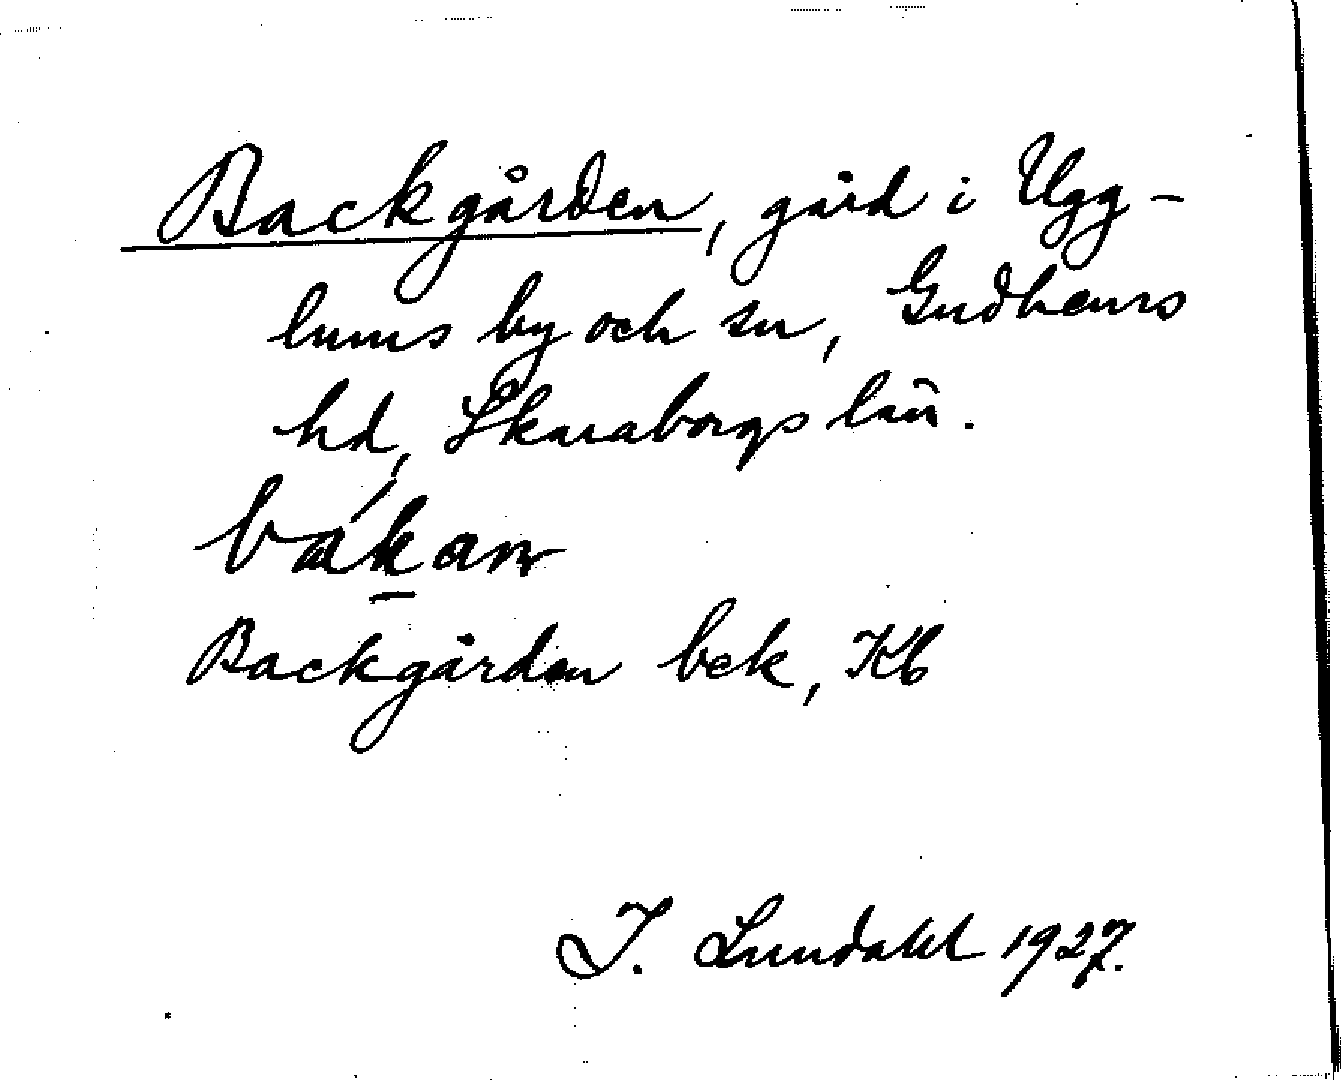 Backgården, gård i Ugg-
lums by och sn, Gudhems
hd, Skaraborgs län.
bákan
Backgården bek, Kb
I. Lundahl 1927.